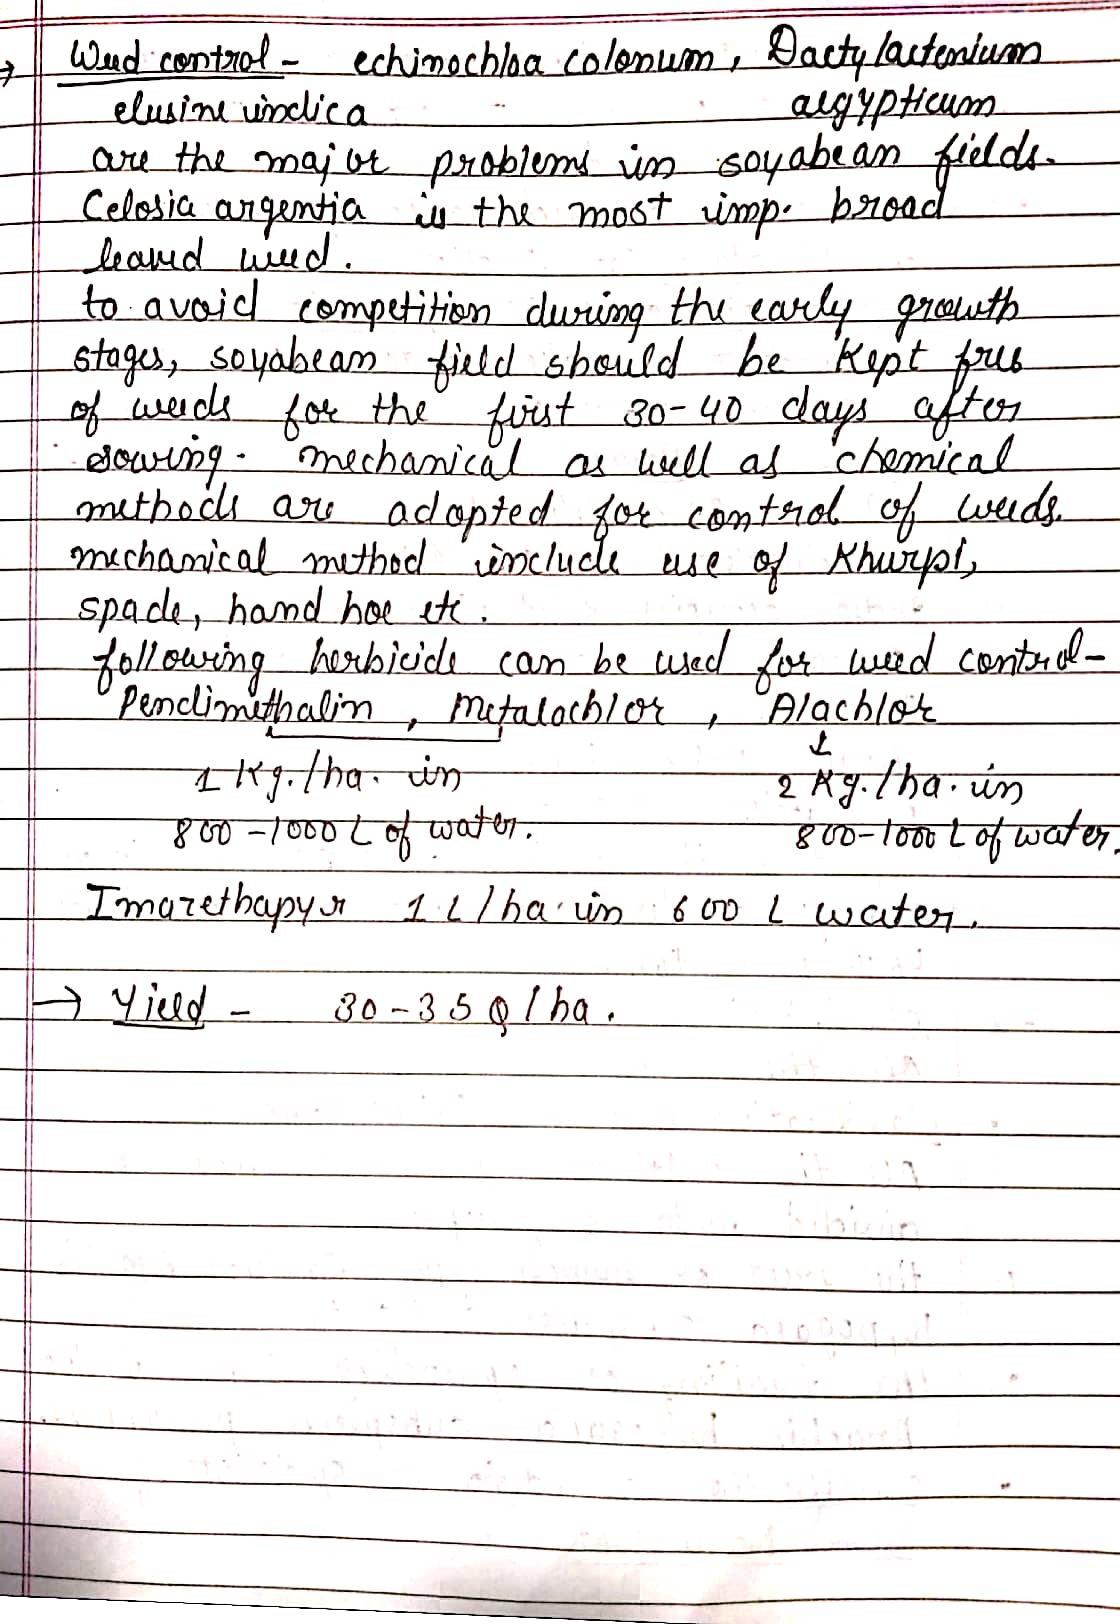 → Weed control - echinochloa colonum, Dactylactenium
elusine indica aegypticum
are the major problems in soyabean fields.
Celosia argentia is the most imp. broad
leaved weed.
to avoid competition during the early growth
stages, soyabean field should be kept free
of weeds for the first 30-40 days after
sowing. mechanical as well as chemical
methods are adopted for control of weeds.
mechanical method include use of Khurpi,
spade, hand hoe etc.
following herbicide can be used for weed control-
Pendimethalin, Metalachlor, Alachlor
↓
1 Kg./ha. in 2 Kg./ha. in
800-1000 L of water. 800-1000 L of water.
Imazethapyr 1 L/ha. in 600 L water.
→ Yield - 30-35 Q/ha.